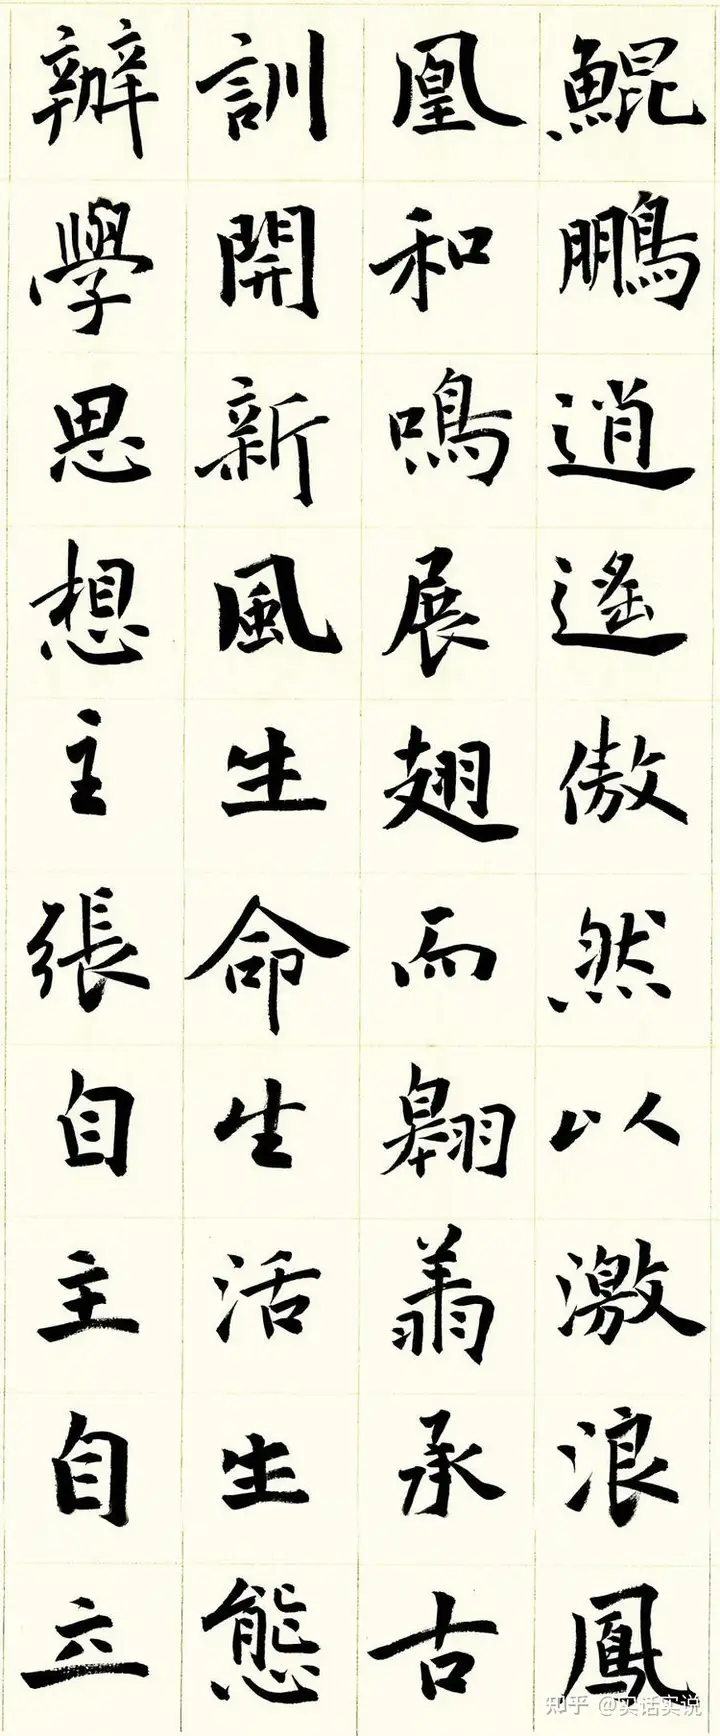 鯤鵬逍遙傲然以激浪鳳
凰和鳴展翅而翱翔承古
訓開新風生命生活生態
辦學思想主張自主自立
知乎 @实话实说